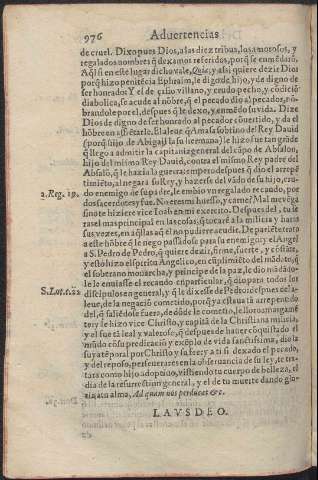 976 Aduertencias
de cruel. Dixo pues Dios, a las diez tribus, los amorosos, y
regalados nombres q̃ dexamos referidos, porq̃ se enmẽdarõ.
Aq̃l si en este lugar dicho vale, Quia; y assi quiere dezir Dios
porq̃ hizo penitẽcia Ephraim, le digo de hijo, y de digno de
ser honrado: Y el de
diabolica, se acude al nõbre, q̃ el pecado dio al pecador, nõ-
brandole por el, despues q̃ le dexo, y enmẽdo su vida. Dize
Dios de digno de ser honrado al pecador cõuertido, y da el
hõbre en
(porq̃ hijo de Abigail su hermana) le hizo su tan grãde
q̃ llego a admitir la capitania general del cãpo de Absalon,
hijo del mismo Rey Dauid, contra el mismo Rey padre del
Absalõ, q̃ le hazia la guerra: empero despues q̃ dio el arrepẽ
timiẽto, al negar a su Rey, y hazerse del vãdo de su hijo, cru-
2. Reg. 19. do enemigo de su padre, le embio vn regalado recaudo, por
dos sacerdotes y fue. No eres mi huesso, y carne? Mal me vẽga
sino te hiziere vice Ioab en mi exercito. Despues del, tu le
ras el mas principal en las cosas, q̃ tocarẽ a la milicia y haras
sus vezes, en aq̃llas aq̃ el no pudiere acudir. De pariẽte trato
a este hõbre q̃ le nego passãdose para su enemigo: y el Angel
a S. Pedro de Pedro, q̃ quiere dezir, firme, fuerte, y cõstãte,
y esto hizo el spirito Angelico, en cũplimiẽto del mãdato, q̃
el soberano monarcha, y principe de la paz, le dio mãdãto-
le le embiasse el recando en particular, q̃ dio para todos los
S. Luc. c. 22. discipulos en general, y q̃ le dixesse de Pedro: despues de la-
ue, de la negacio cometido, porq̃ ya estaua tã arrepentido
del, q̃ saliẽdose fuera, dõde le cometo, le lloro amargamẽ
te: y se hizo vice Christo, y capitã de la Christiana milicia,
y el fue tã leal, y valeroso, q̃ despues de hauer cõquistado el
mũdo cõ su predicaciõ y exẽplo de vida sanctissima, dio la
suya tẽporal por Christo y su fee: y a ti si dexado el pecado,
y del reposo, perseuerares en la obseruancia de su ley, te tra-
tara como hijo adoptiuo, vistiendo tu cuerpo de belleza, el
dia de la resurreciõ general, y el de tu muerte dando glo-
ria a tu alma, Ad quam nos perducat &c.
LAVS DEO.